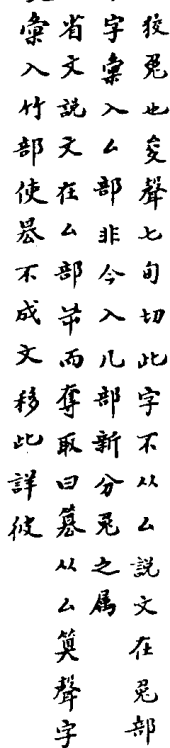 狡兔也夋聲七旬切此字不从厶說文在兔部
字彙入厶部非今入几部新分兔之屬
省文說文在厶部屰而奪取曰篡从厶算聲字
彙入竹部使㫷不成文移此詳彼